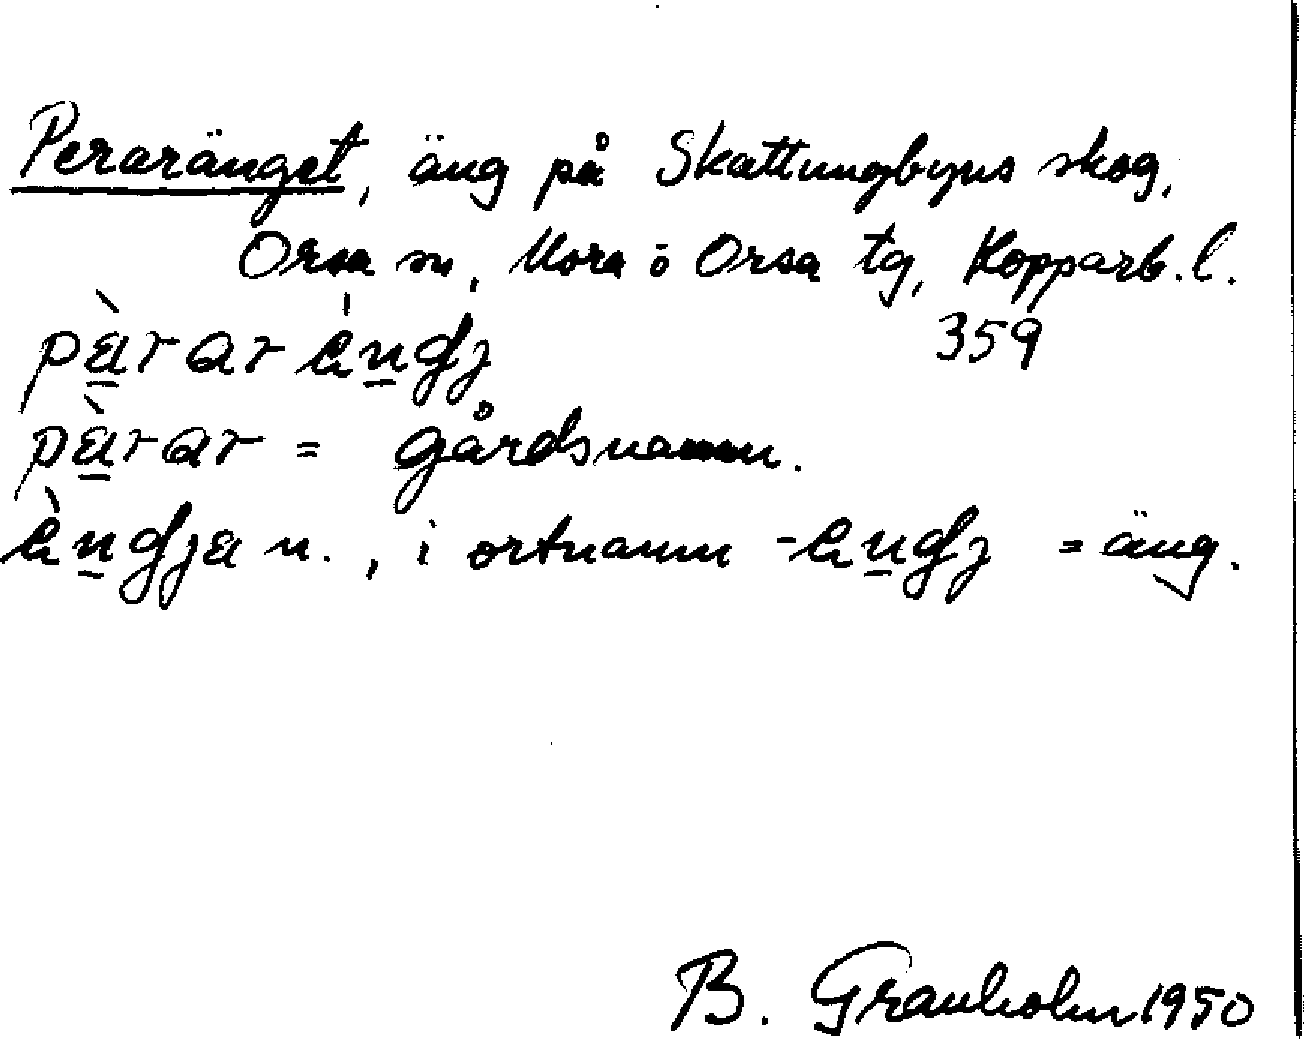 Peraränget, äng på Skattungbyns skog,
Orsa sn, Mora o Orsa tg, Kopparb. l.
359
pàrar
pàrar = gårdsnamn.
n., i ortnamn = äng.
B. Granholm 1950